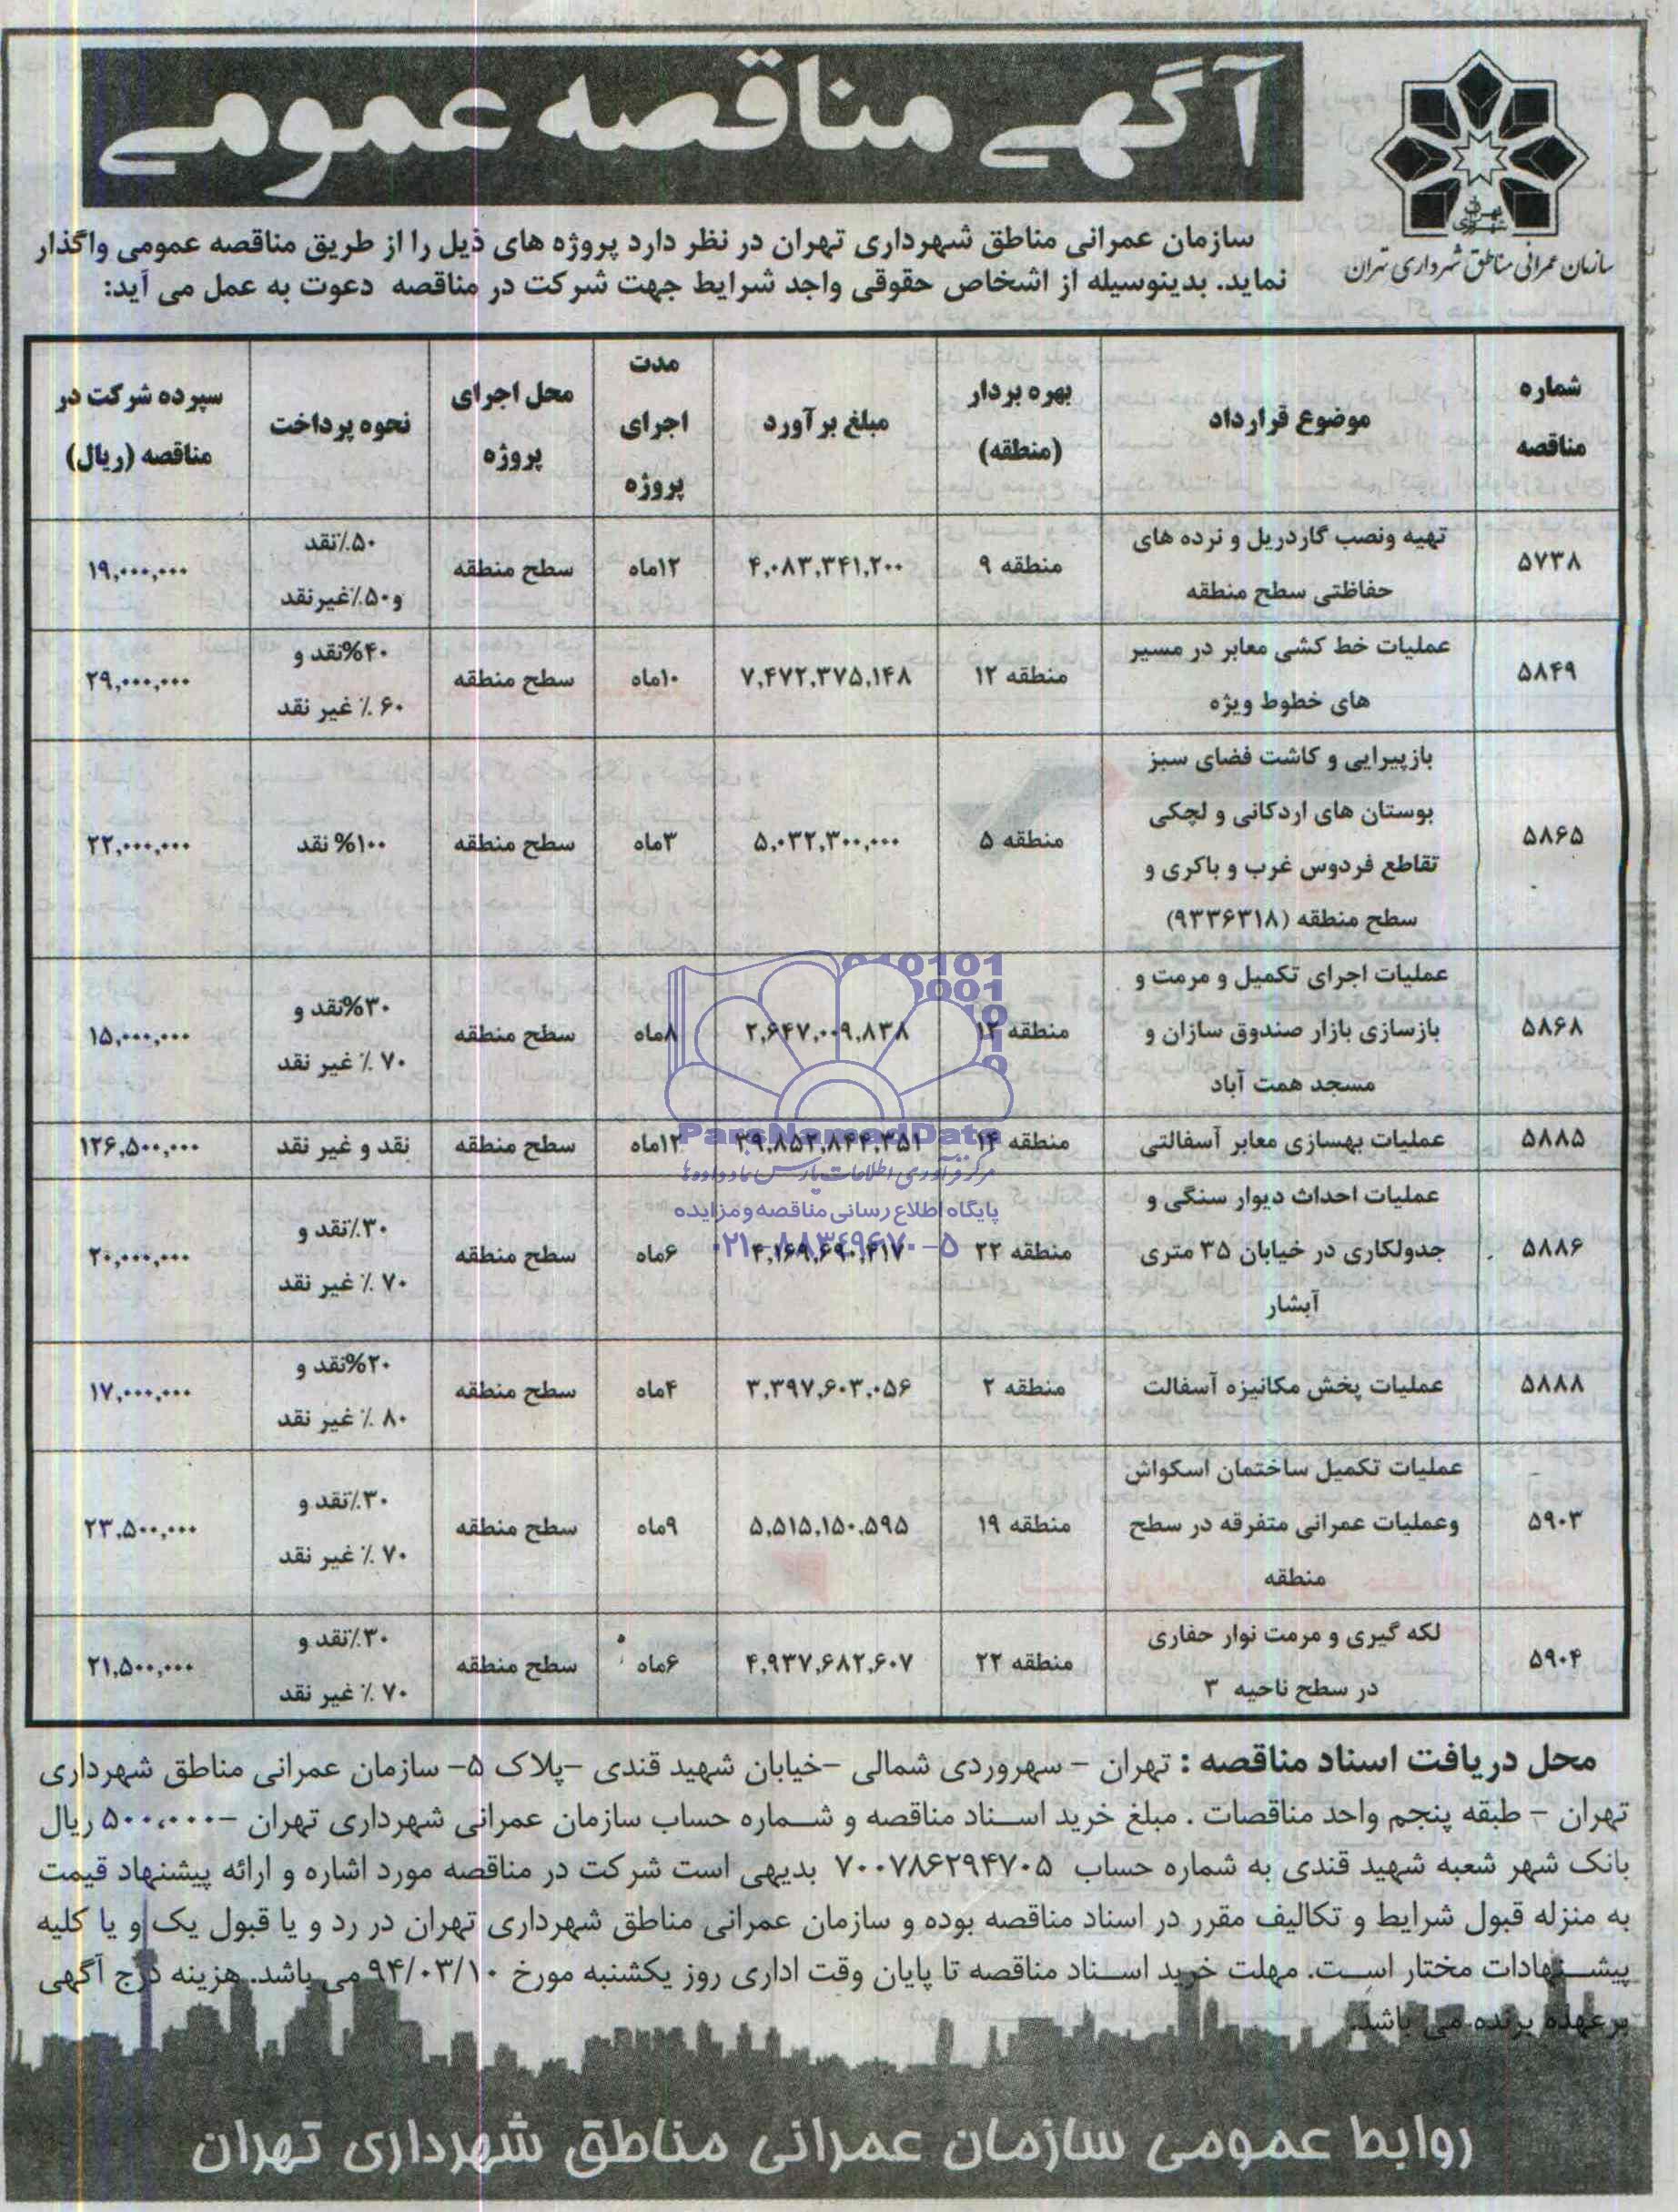 آگهی مناقصه عمومی
شهرداری تهران
سازمان عمرانی مناطق شهرداری تهران
سازمان عمرانی مناطق شهرداری تهران در نظر دارد پروژه های ذیل را از طریق مناقصه عمومی واگذار
نماید. بدینوسیله از اشخاص حقوقی واجد شرایط جهت شرکت در مناقصه دعوت به عمل می آید:
شماره مناقصه | موضوع قرارداد | بهره بردار (منطقه) | مبلغ برآورد | مدت اجرای پروژه | محل اجرای پروژه | نحوه پرداخت | سپرده شرکت در مناقصه (ریال)
۵۷۳۸ | تهیه ونصب گاردریل و نرده های حفاظتی سطح منطقه | منطقه ۹ | ۴,۰۸۳,۳۴۱,۲۰۰ | ۱۲ماه | سطح منطقه | ۵۰٪نقد و۵۰٪غیرنقد | ۱۹,۰۰۰,۰۰۰
۵۸۴۹ | عملیات خط کشی معابر در مسیر های خطوط ویژه | منطقه ۱۲ | ۷,۴۷۲,۳۷۵,۱۴۸ | ۱۰ماه | سطح منطقه | ۴۰%نقد و ۶۰ ٪ غیر نقد | ۲۹,۰۰۰,۰۰۰
۵۸۶۵ | بازپیرایی و کاشت فضای سبز بوستان های اردکانی و لچکی تقاطع فردوس غرب و باکری و سطح منطقه (۹۳۳۶۳۱۸) | منطقه ۵ | ۵,۰۳۲,۳۰۰,۰۰۰ | ۳ماه | سطح منطقه | ۱۰۰% نقد | ۲۲,۰۰۰,۰۰۰
۵۸۶۸ | عملیات اجرای تکمیل و مرمت و بازسازی بازار صندوق سازان و مسجد همت آباد | منطقه ۱۲ | ۲,۶۴۷,۰۰۹,۸۳۸ | ۸ماه | سطح منطقه | ۳۰%نقد و ۷۰ ٪ غیر نقد | ۱۵,۰۰۰,۰۰۰
۵۸۸۵ | عملیات بهسازی معابر آسفالتی | منطقه ۱۴ | ۳۹,۸۵۲,۸۴۴,۳۵۱ | ۱۲ماه | سطح منطقه | نقد و غیر نقد | ۱۲۶,۵۰۰,۰۰۰
۵۸۸۶ | عملیات احداث دیوار سنگی و جدولکاری در خیابان ۳۵ متری آبشار | منطقه ۲۲ | ۴,۱۶۹,۶۹۰,۴۱۷ | ۶ماه | سطح منطقه | ۳۰٪نقد و ۷۰ ٪ غیر نقد | ۲۰,۰۰۰,۰۰۰
۵۸۸۸ | عملیات پخش مکانیزه آسفالت | منطقه ۲ | ۳,۳۹۷,۶۰۳,۰۵۶ | ۴ماه | سطح منطقه | ۲۰%نقد و ۸۰ ٪ غیر نقد | ۱۷,۰۰۰,۰۰۰
۵۹۰۳ | عملیات تکمیل ساختمان اسکواش وعملیات عمرانی متفرقه در سطح منطقه | منطقه ۱۹ | ۵,۵۱۵,۱۵۰,۵۹۵ | ۹ماه | سطح منطقه | ۳۰٪نقد و ۷۰ ٪ غیر نقد | ۲۳,۵۰۰,۰۰۰
۵۹۰۴ | لکه گیری و مرمت نوار حفاری در سطح ناحیه ۳ | منطقه ۲۲ | ۴,۹۳۷,۶۸۲,۶۰۷ | ۶ماه | سطح منطقه | ۳۰٪نقد و ۷۰ ٪ غیر نقد | ۲۱,۵۰۰,۰۰۰
ParsNamadData
مرکز فرآوری اطلاعات پارس نماد داده ها
پایگاه اطلاع رسانی مناقصه و مزایده
۰۲۱-۸۸۳۴۹۶۷۰-۵
محل دریافت اسناد مناقصه : تهران - سهروردی شمالی -خیابان شهید قندی -پلاک ۵- سازمان عمرانی مناطق شهرداری
تهران - طبقه پنجم واحد مناقصات . مبلغ خرید اسناد مناقصه و شماره حساب سازمان عمرانی شهرداری تهران -۵۰۰،۰۰۰ ریال
بانک شهر شعبه شهید قندی به شماره حساب ۷۰۰۷۸۶۲۹۴۷۰۵ بدیهی است شرکت در مناقصه مورد اشاره و ارائه پیشنهاد قیمت
به منزله قبول شرایط و تکالیف مقرر در اسناد مناقصه بوده و سازمان عمرانی مناطق شهرداری تهران در رد و یا قبول یک و یا کلیه
پیشنهادات مختار است. مهلت خرید اسناد مناقصه تا پایان وقت اداری روز یکشنبه مورخ ۹۴/۰۳/۱۰ می باشد. هزینه درج آگهی
برعهده برنده می باشد.
روابط عمومی سازمان عمرانی مناطق شهرداری تهران